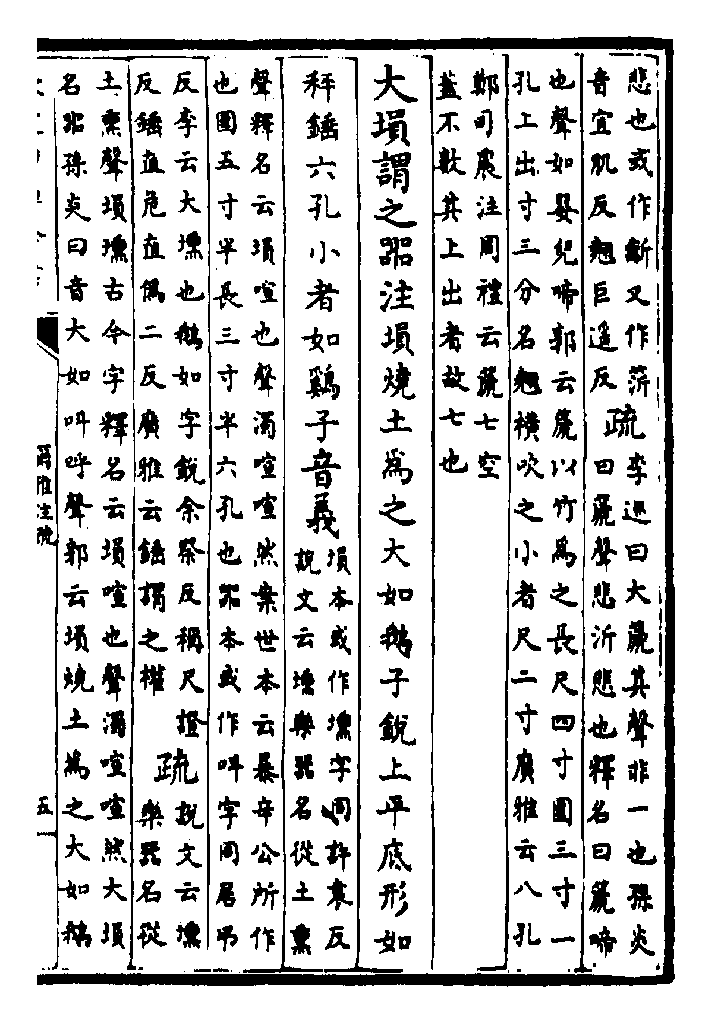 悲也或作斷又作
音宜肌反翹巨遥反
疏
李巡曰大篪其聲非一也孫炎
曰篪聲悲沂悲也釋名曰篪啼
也聲如嬰兒啼郭云篪以竹爲之長尺四寸圍三寸一
孔上出寸三分名翹横吹之小者尺二寸廣雅云八孔
鄭司農注周禮云篪七空
蓋不數其上出者故七也
大塤謂之嘂注塤燒土爲之大如鵝子銳上平底形如
秤錘六孔小者如雞子音義
塤本或作壎字同許袁反
說文云壎樂器名從土熏
聲釋名云塤喧也聲濁喧喧然案世本云暴辛公所作
也圍五寸半長三寸半六孔也嘂本或作叫字同居弔
反李云大壎也鵝如字銳余祭反稱尺證
反錘直危直僞二反廣雅云錘謂之權
疏
說文云壎
樂器名從
土熏聲塤壎古今字釋名云塤喧也聲濁喧喧然大塤
名嘂孫炎曰音大如叫呼聲郭云塤燒土爲之大如鵝
爾雅注疏
五